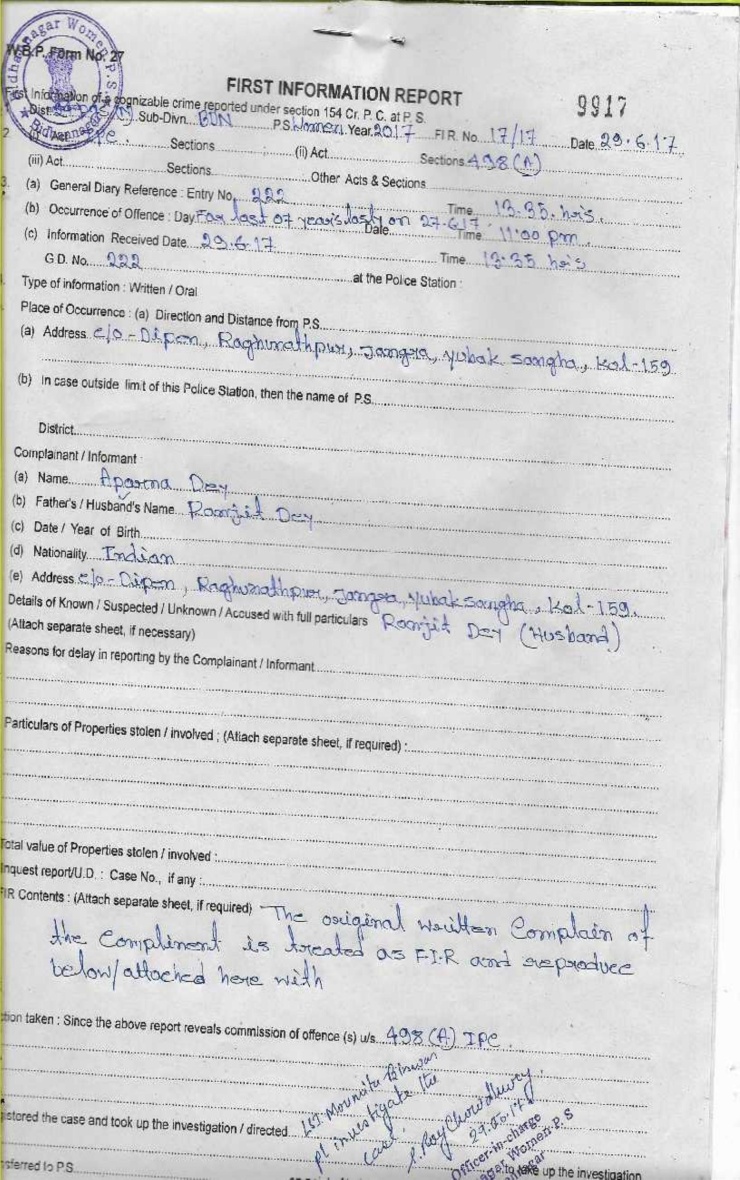 Bidhannagar Women P.S.
Bidhannagar
W.B.P. Form No. 27
FIRST INFORMATION REPORT
9917
First Information of a cognizable crime reported under section 154 Cr. P. C. at P. S.
Dist. Sub-Divn. BDN P.S. Women. Year 2017 FIR. No. 17/17 Date 29.6.17
2. (i) IPC. Sections (ii) Act Sections 498(A)
(iii) Act Sections Other Acts & Sections
3. (a) General Diary Reference : Entry No. 222 Time 13.35. hrs.
(b) Occurrence of Offence : Day For last 07 years lastly on 27.6.17 Date Time 11:00 pm
(c) Information Received Date 29.6.17 Time 13.35 hrs
G.D. No. 222 at the Police Station :
Type of information : Written / Oral
Place of Occurrence : (a) Direction and Distance from P.S.
(a) Address C/o - Dipen, Raghunathpur, Jangra, Yubak Sangha, Kol-159
(b) In case outside limit of this Police Station, then the name of P.S.
District
Complainant / Informant :
(a) Name Aparna Dey
(b) Father's / Husband's Name Ranjit Dey
(c) Date / Year of Birth
(d) Nationality Indian
(e) Address C/o - Dipen, Raghunathpur, Jangra, Yubak Sangha, Kol-159.
Details of Known / Suspected / Unknown / Accused with full particulars Ranjit Dey (Husband)
(Attach separate sheet, if necessary)
Reasons for delay in reporting by the Complainant / Informant
Particulars of Properties stolen / involved : (Attach separate sheet, if required) :
Total value of Properties stolen / involved :
Inquest report/U.D. : Case No., if any :
FIR Contents : (Attach separate sheet, if required) The original written Complain of
the Compliment is treated as F.I.R and reproduce
below/attached here with
tion taken : Since the above report reveals commission of offence (s) u/s. 498(A) IPC.
LSI Mounita Biswas
pl investigate the
case.
S. Roy Chowdhury
gistered the case and took up the investigation / directed
Officer-in-charge
nagar Women P.S
nagar
to take up the investigation
nsferred to P.S.